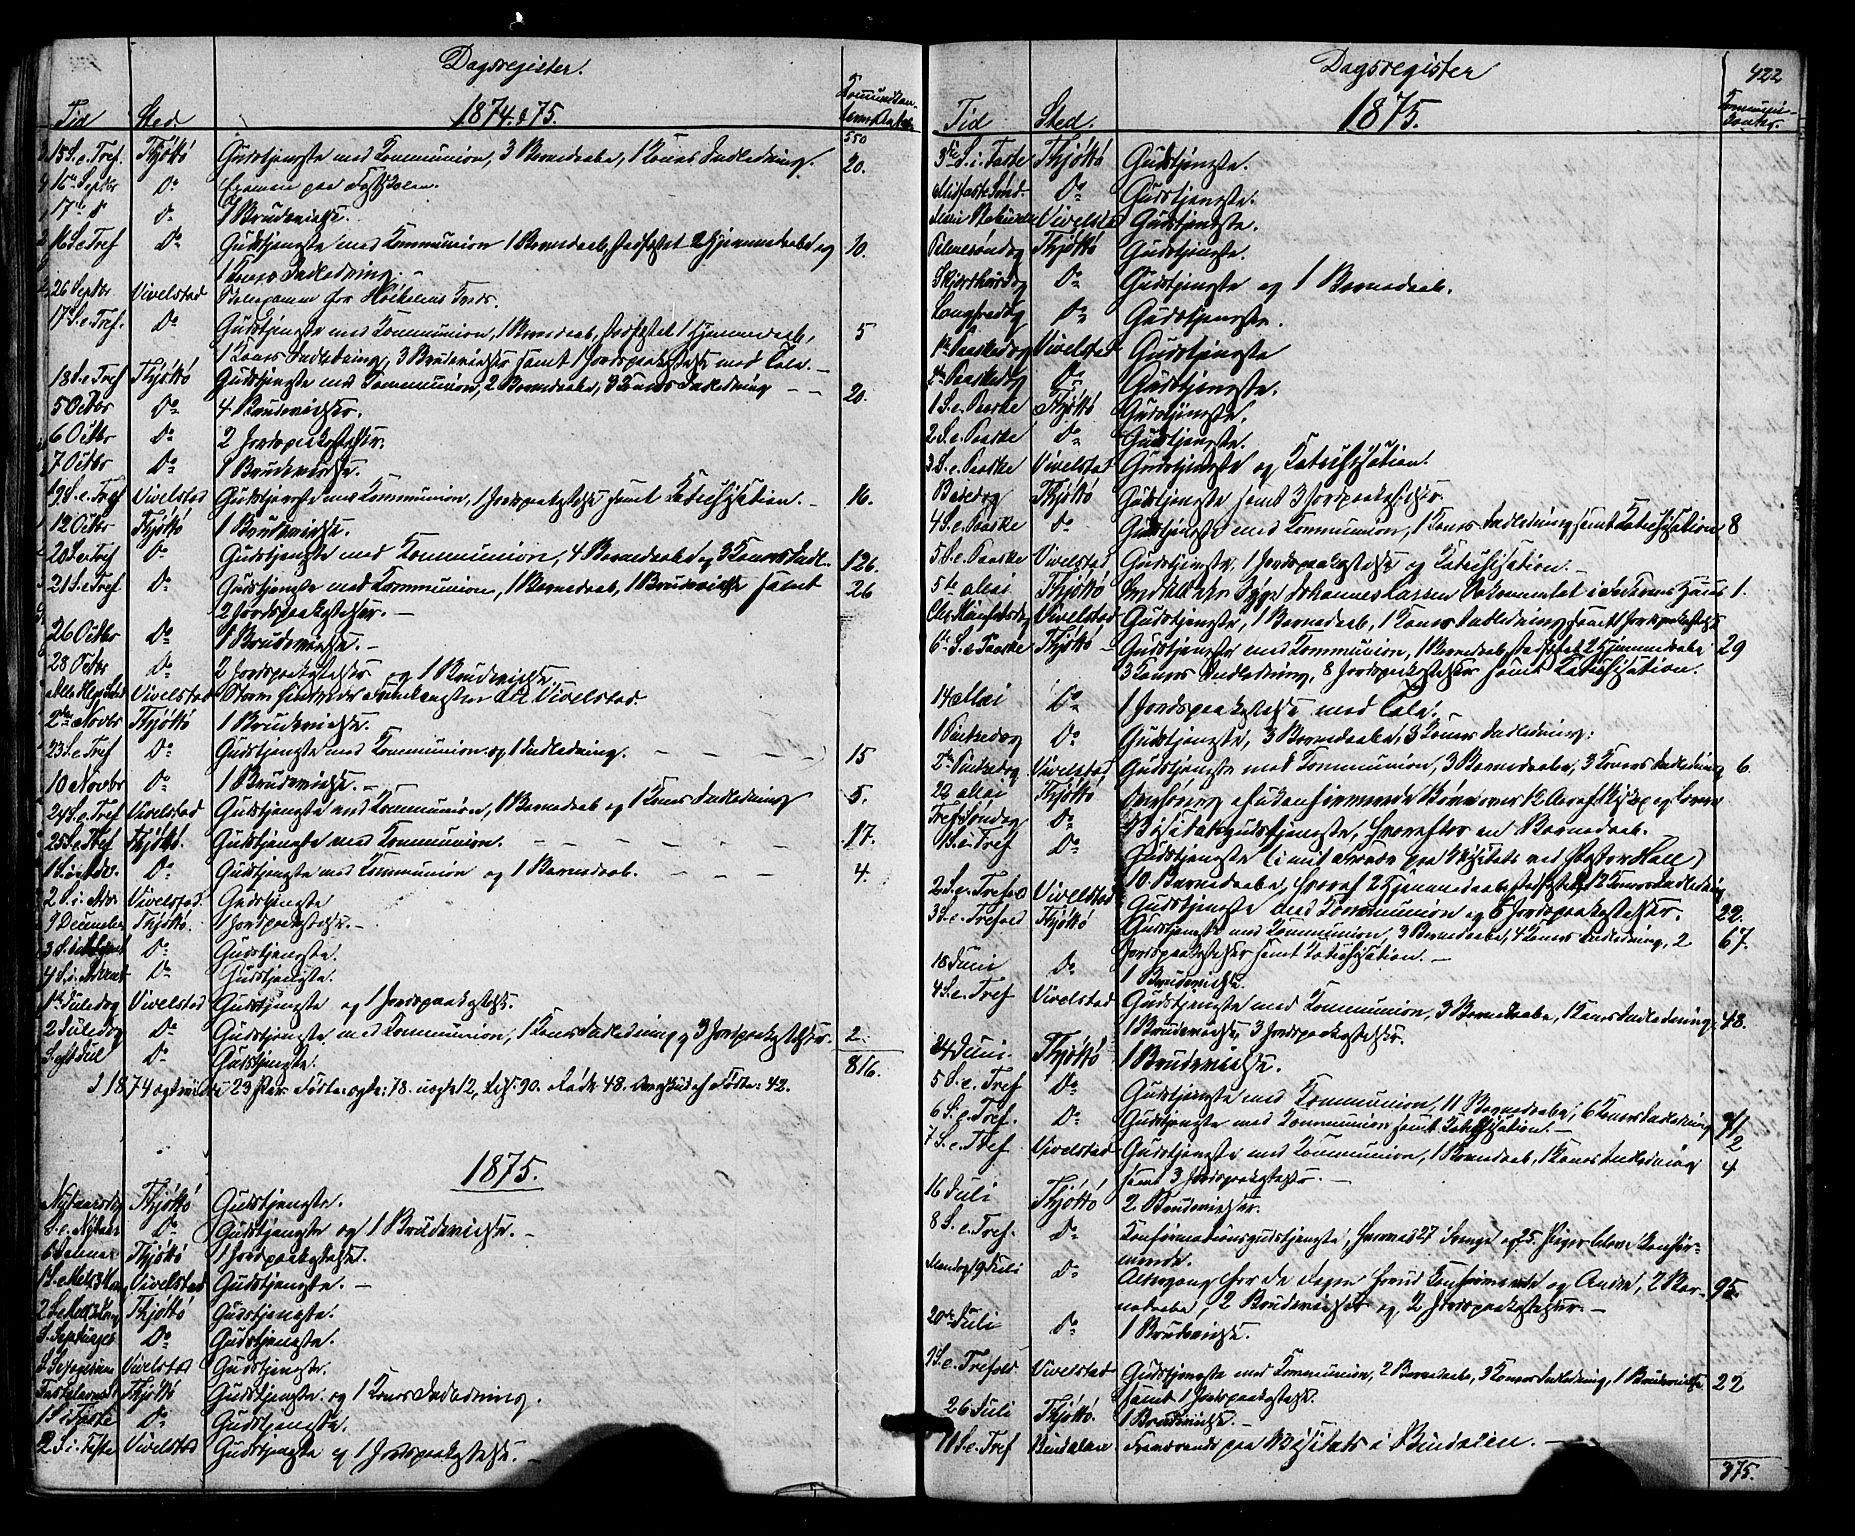 Dagsregister.
1874 & 75.
Tid Sted
550
15 S. e. Tref. Thjøttø Gudstjeneste med Kommunion, 3 Barnedaab, 1 Kones Indledning. 20.
16 Septbr Do Examen paa Fastskolen.
17 Do 1 Brudevielse.
16 S. e. Tref Do Gudstjeneste med Kommunion 1 Barnedaab, stadfæstet 2 Hjemmedaab og 10.
1 Kones Indledning.
26 Septbr Vivelstad
17 S. e. Tref. Do Gudstjeneste med Kommunion, 1 Barnedaab, stadfæstet 1 Hjemmedaab, 5
1 Kones Indledning, 3 Brudevielser samt 1 Jordspaakastelse med Tale. -
18 S. e. Tref Thjøttø Gudstjeneste med Kommunion, 2 Barnedaab, 3 Kones Indledning - - 20.
5 Octbr Do 4 Brudevielser.
6 Octbr Do 2 Jordspaakastelser.
7 Octbr Do 1 Brudevielse.
19 S. e. Tref Vivelstad Gudstjeneste med Kommunion, 1 Jordspaakastelse samt Katechisation. - 16.
12 Octbr Thjøttø 1 Brudevielse.
20 S. e. Tref Do Gudstjeneste med Kommunion, 4 Barnedaab og 3 Koners Indl. 126.
21 S. e. Tref Do Gudstjeneste med Kommunion, 1 Barnedaab, 1 Brudevielse samt 26
2 Jordspaakastelser. -
26 Octbr Do 1 Brudevielse.
28 Octbr Do 2 Jordspaakastelser og 1 Brudevielse.
Vivelstad Storm hindrede Vivelstad.
2den Novbr Thjøttø 1 Brudevielse.
23 S. e. Tref Do Gudstjeneste med Kommunion og 1 Indledning. - - - 15
10 Novbr Do 1 Brudevielse. -
24 S. e. Tref Vivelstad Gudstjeneste med Kommunion, 1 Barnedaab og 1 Kones Indledning 5.
25 S. e. Tref Thjøttø. Gudstjeneste med Kommunion. - - - - - 17.
1 S. i Adv. Do Gudstjeneste med Kommunion og 1 Barnedaab. - - - 4.
2 S. i. Adv Vivelstad. Gudstjeneste
9 December Thjøttø. 1 Jordspaakastelse. -
3 S. i Advent Do Gudstjeneste.
4 S. i. Advent Do Gudstjeneste.
1ste Juledag Vivelstad Gudstjeneste og 1 Jordspaakastelse.
2 Juledag Do Gudstjeneste med Kommunion, 1 Kones Indledning og 3 Jordspaakastelser. 2.
S. e. Jul Do Gudstjeneste. 816.
I 1874 23 Par. Fødte: ægte: 78. uægte 12, 90. Døde 48. Overskud af Fødte: 42.
1875.
Nytaarsdag Thjøttø Gudstjeneste.
S. e. Nytaar Do Gudstjeneste og 1 Brudevielse. -
6 Januar Thjøttø 1 Jordspaakastelse.
Vivelstad Gudstjeneste. -
Thjøttø Gudstjeneste.
S. Septuages Do Gudstjeneste.
S. Sexagesima Vivelstad Gudstjeneste.
Fastelavnss Thjøttø Gudstjeneste og 1 Kones Indledning.
1 S. i Faste Do Gudstjeneste.
2 S. i. Faste Vivelstad Gudstjeneste og 1 Jordspaakastelse. -
Dagsregister 422
Tid Sted. 1875.
3die S. i. Faste Thjøttø Gudstjeneste.
Midfaste Sønd. Do Gudstjeneste.
Vivelstad Gudstjeneste.
Palmesøndag Thjøttø Gudstjeneste.
Skjærthorsdag Do Gudstjeneste og 1 Barnedaab.
Langfredag Do Gudstjeneste.
1ste Paaskedag Vivelstad Gudstjeneste
2den Paaskedag Do Gudstjeneste.
1 S. e. Paaske Thjøttø Gudstjeneste.
2 S. e. Paaske Do Gudstjeneste.
3 S. e. Paaske Vivelstad Gudstjeneste og Katechisation.
Bededag Thjøttø Gudstjeneste samt 3 Jordspaakastelser.
4 S. e. Paaske Do Gudstjeneste med Kommunion, 1 Kones Indledning samt Katechisation 8
5 S. e. Paaske Vivelstad Gudstjeneste, 1 Jordspaakastelse og Katechisation. -
5te Mai Thjøttø Syge Johannes Larsen i Hans 1.
Chr. Himmelfartsdag Vivelstad Gudstjeneste, 1 Barnedaab, 1 Kones Indledning samt 1 Jordspaakastelse
6te S. e Paaske Thjøttø Gudstjeneste med Kommunion, 1 Barnedaab, stadfæstet 2 Hjemmedaab 29
3 Koners Indledning, 8 Jordspaakastelser samt Katechisation.
14 Mai Do 1 Jordspaakastelse med Tale.
1 Pintsedag Do Gudstjeneste, 3 Barnedaab, 3 Koners Indledning.
2den Pintsedag Vivelstad Gudstjeneste med Kommunion, 3 Barnedaab, 3 Koners Indledning 6.
22 Mai Thjøttø
Tref Søndag Do Visitatsgudstjeneste, hvorefter en Barnedaab.
1 S. e. Tref Do Gudstjeneste (i mit Fravær paa Visitats ved Pastor Hall)
10 Barnedaab, hvoraf 2 Hjemmedaab stadfæstet, 12 Koners Indledning
2 S. e. Trefold Vivelstad Gudstjeneste med Kommunion og 6 Jordspaakastelser. 22.
3 S. e. Trefold Thjøttø Gudstjeneste med Kommunion, 3 Barnedaab, 4 Koners Indledning, 2 67.
Jordspaakastelser samt Katechisation. -
18 Juni Do 1 Brudevielse.
4 S. e. Tref Vivelstad Gudstjeneste med Kommunion, 3 Barnedaab, 1 Kones Indledning, 48.
1 Brudevielse, 3 Jordspaakastelser.
24 Juni. Thjøttø 1 Brudevielse.
5 S. e. Tref Do Gudstjeneste med Kommunion, 11 Barnedaab, 6 Koners Indledning 71
6 S. e. Tref. Do Gudstjeneste med Kommunion samt Katechisation. - 2
7 S. e. Tref Vivelstad Gudstjeneste med Kommunion, 1 Barnedaab, 1 Kones Indledning 4
samt 3 Jordspaakastelser. -
16 Juli Thjøttø 2 Brudevielser.
8 S. e. Tref. Do Konfirmationsgudstjeneste, hvorved 27 Drenge og 25 Piger bleve konfir-
merede.
Mandag 19 Juli Do Altergang for de Dagen forud Konfirmerede og Andre, 2 Bar- 95.
nedaab, 2 Brudevielser og 2 Jordspaakastelser. -
20de Juli Do 1 Brudevielse.
9 S. e. Trefold. Vivelstad Gudstjeneste med Kommunion, 2 Barnedaab, 3 Koners Indledning, 1 Brudevielse 22
samt 1 Jordspaakastelse.
26 Juli Thjøttø. 1 Brudevielse. -
S. e. Tref Bindalen Fraværende paa Visitats i Bindalen. -
375.